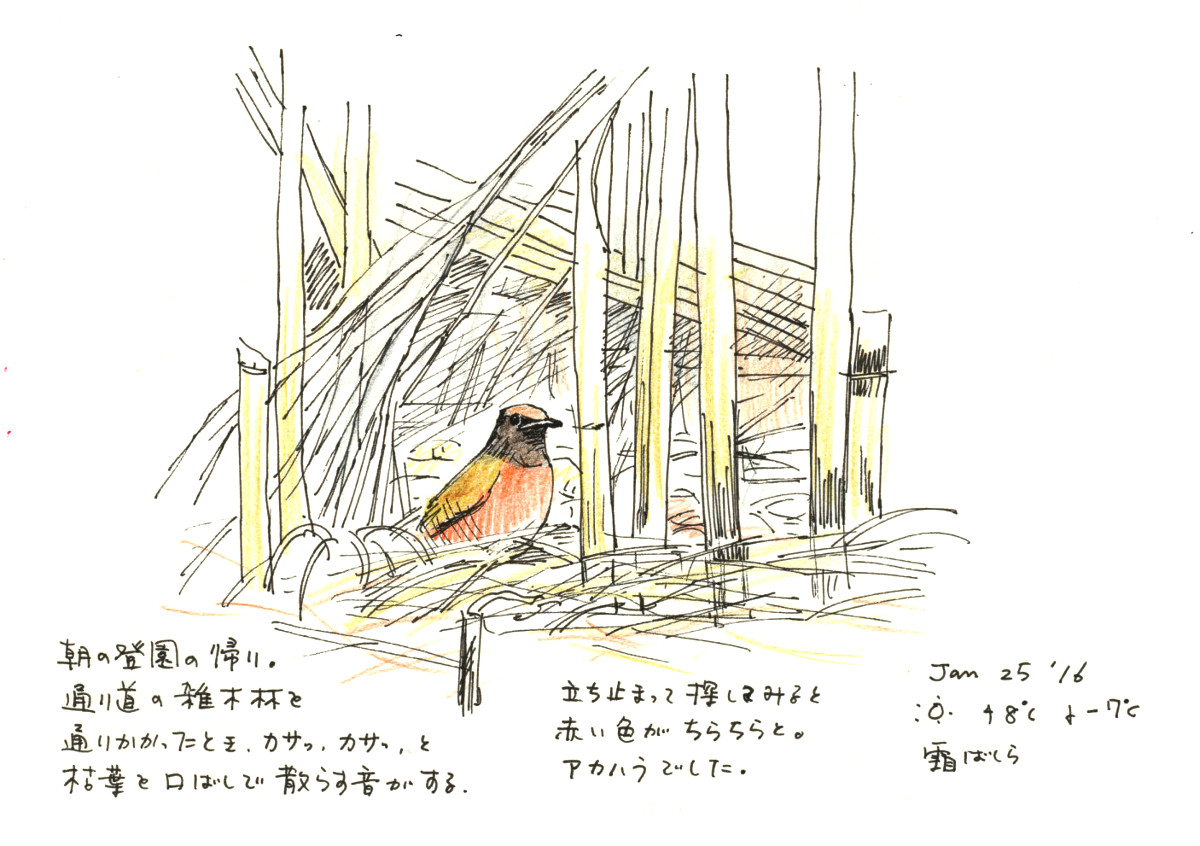 朝の登園の帰り。
通り道の雑木林を
通りかかったとき、カサッ、カサッ、と
枯葉を口ばしで散らす音がする。
立ち止まって探してみると
赤い色がちらちらと。
アカハラでした。
Jan 25 '16
↑8℃ ↓-7℃
霜ばしら